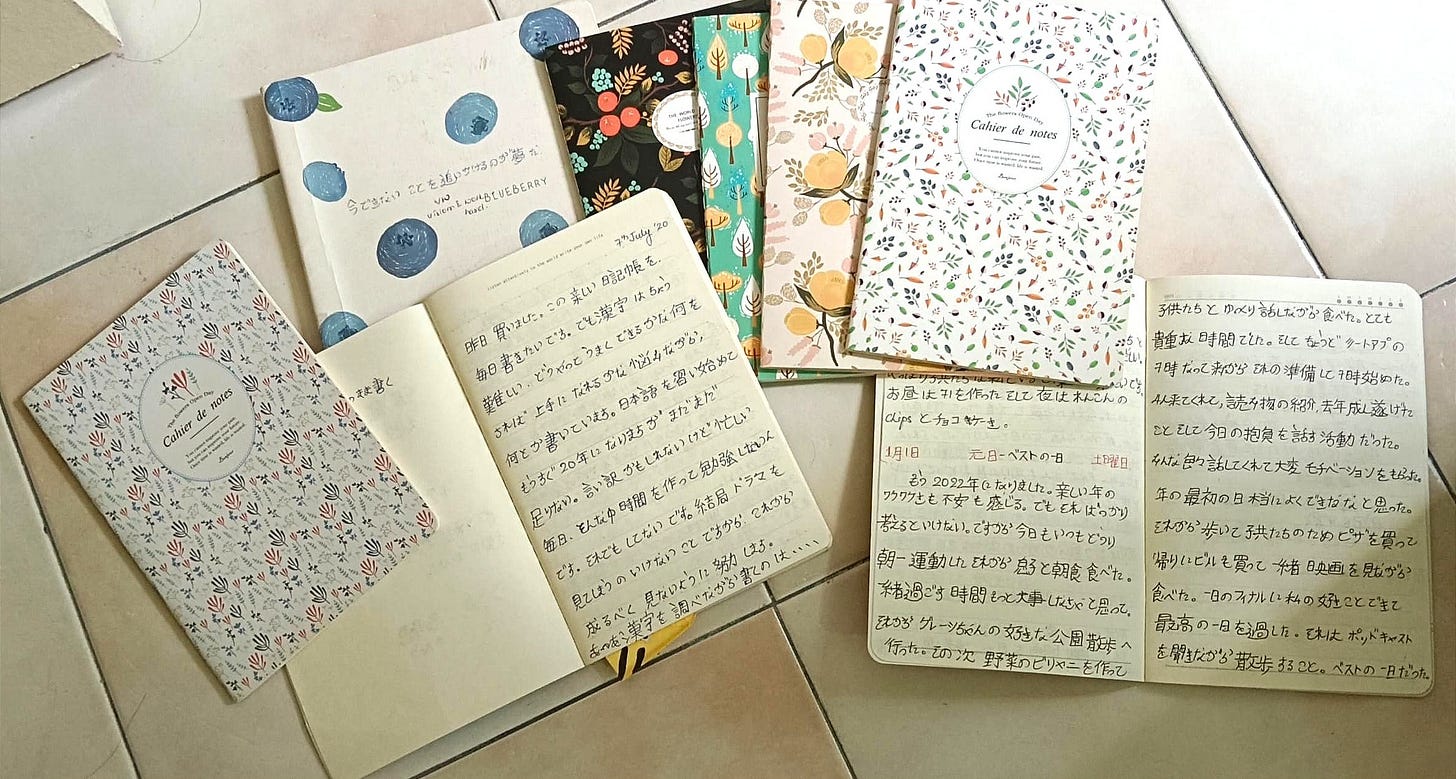 今できないことを追いかけるのが夢だ
BLUEBERRY
THE WORLD
Cahier de notes
The flowers Open Day
Cahier de notes
You cannot improve your past,
but you can improve your future.
Once time is wasted, life is wasted.
Bonjour
まま書く
listen attentively to the world write your own life
7th July '20
昨日買いました。この楽しい日記帳を
毎日書きたいです。でも漢字はちょう
難しい。どうやってうまくできるかな何を
すれば上手になれるかな悩みながら、
何とか書いています。日本語を習い始めて
もうすぐ20年になりますがまだまだ
足りない。言い訳かもしれないけど忙しい
毎日、どんな中時間を作って勉強しなきゃ
です。それでもしてないです。結局ドラマを
見てしまうのいけないことですから、これから
成るべく見ないように努力します。
漢字を調べながら書くのは、、、、
お昼はチを作ったそして夜はれんこんの
chipsとチョコケーキ。
1月1日 元日-ベストの一日 土曜日
もう2022年になりました。楽しい年の
ワクワクさも不安も感じる。でもそればっかり
考るといけない。ですから今日もいつもどうり
朝一運動したそれから息ると朝食食べた。
一緒過ごす時間もっと大事しなきゃと思って。
それからグレーソちゃんの好きな公園散歩へ
行った。その次 野菜のビリヤニを作って
子供たちとゆっくり話しながら食べた。とても
貴重な時間でした。そしてちょうどノートアプの
7時なって来からその準備して7時始めた。
4人来てくれて、読み物の紹介、去年成し遂げた
ことそして今日の抱負を話す活動だった。
みんな色々話してくれて大変モチベーションをもらった。
年の最初の日本当によくできたなと思った。
それから歩いて子供たちのためピザを買って
帰りにビルも買って一緒日映画を見ながら
食べた。一日のフィナルに私の好きことできて
最高の一日を過した。それはポッドキャスト
を聞きながら散歩すること。ベストの一日だった。
Cahier de notes